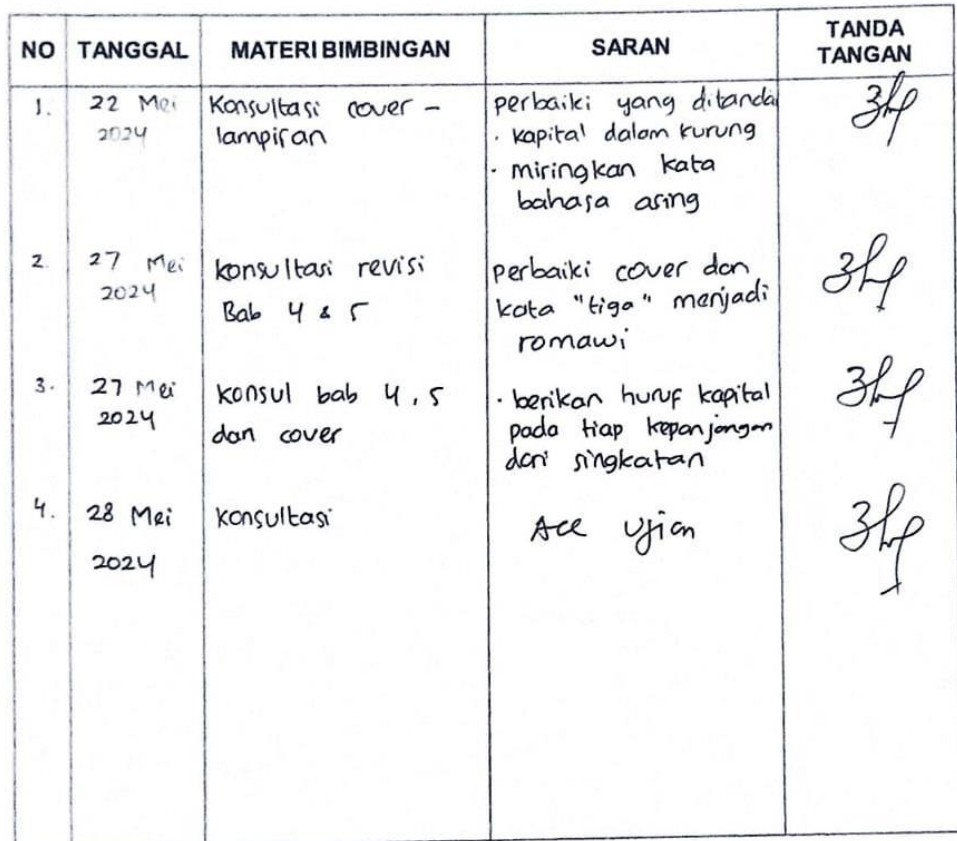 NO TANGGAL MATERI BIMBINGAN SARAN TANDA TANGAN
1. 22 Mei 2024
Konsultasi cover -
lampiran
perbaiki yang ditandai
· kapital dalam kurung
· miringkan kata
bahasa asing
2. 27 Mei 2024
konsultasi revisi
Bab 4 & 5
perbaiki cover dan
kata "tiga" menjadi
romawi
3. 27 Mei 2024
konsul bab 4, 5
dan cover
· berikan huruf kapital
pada tiap kepanjangan
dari singkatan
4. 28 Mei 2024
konsultasi
Acc Ujian